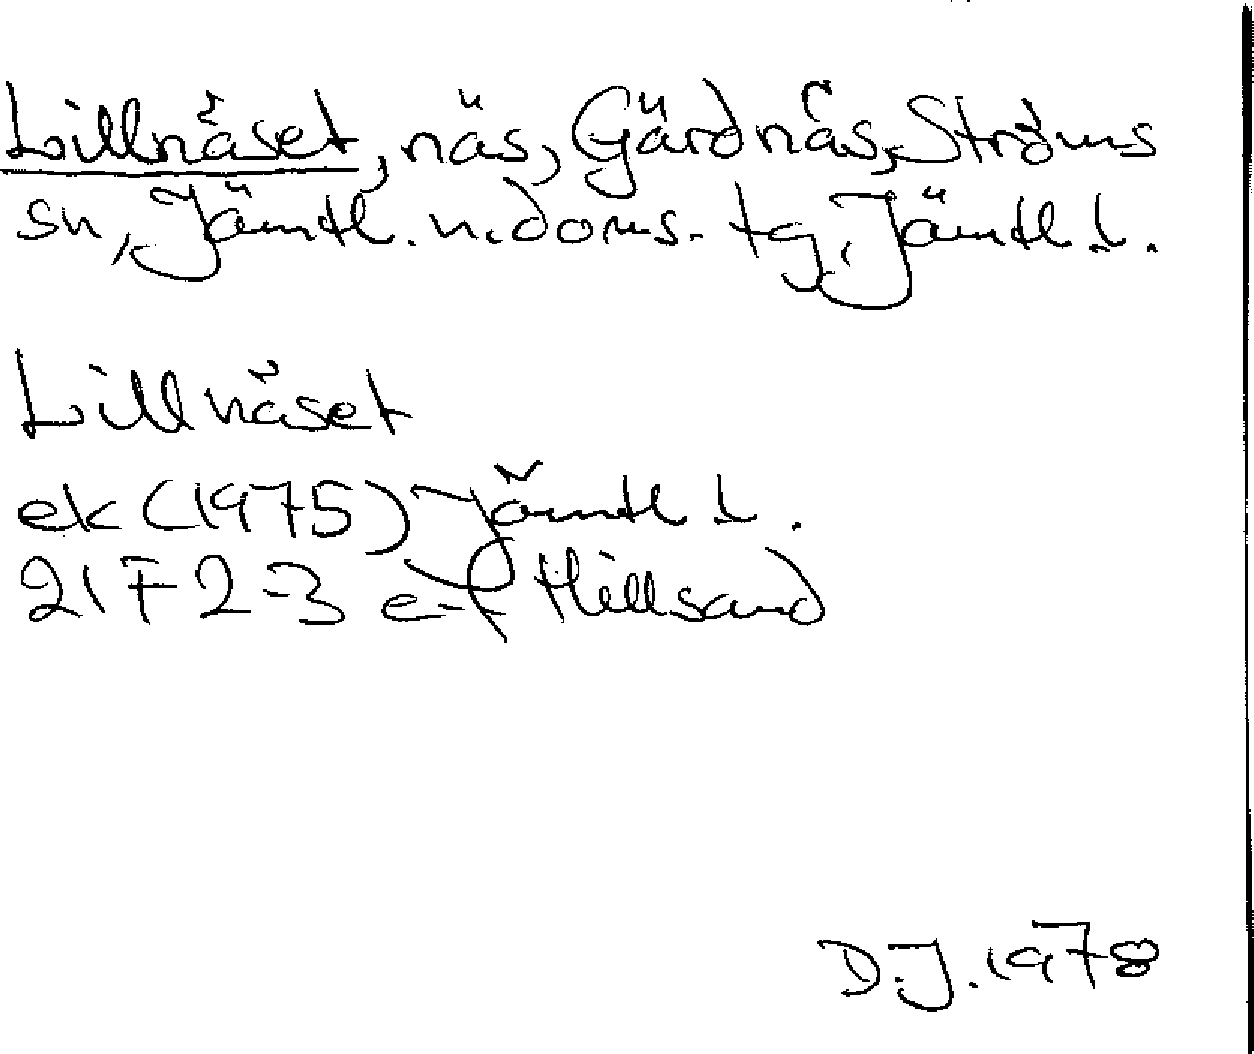 Lillnäset, näs, Gärdnäs, Ströms
sn, Jämtl. n. doms. tg, Jämtl l.
Lillnäset
ek (1975) Jämtl l.
21F 2-3 e-f Hillsand
D.J. 1978